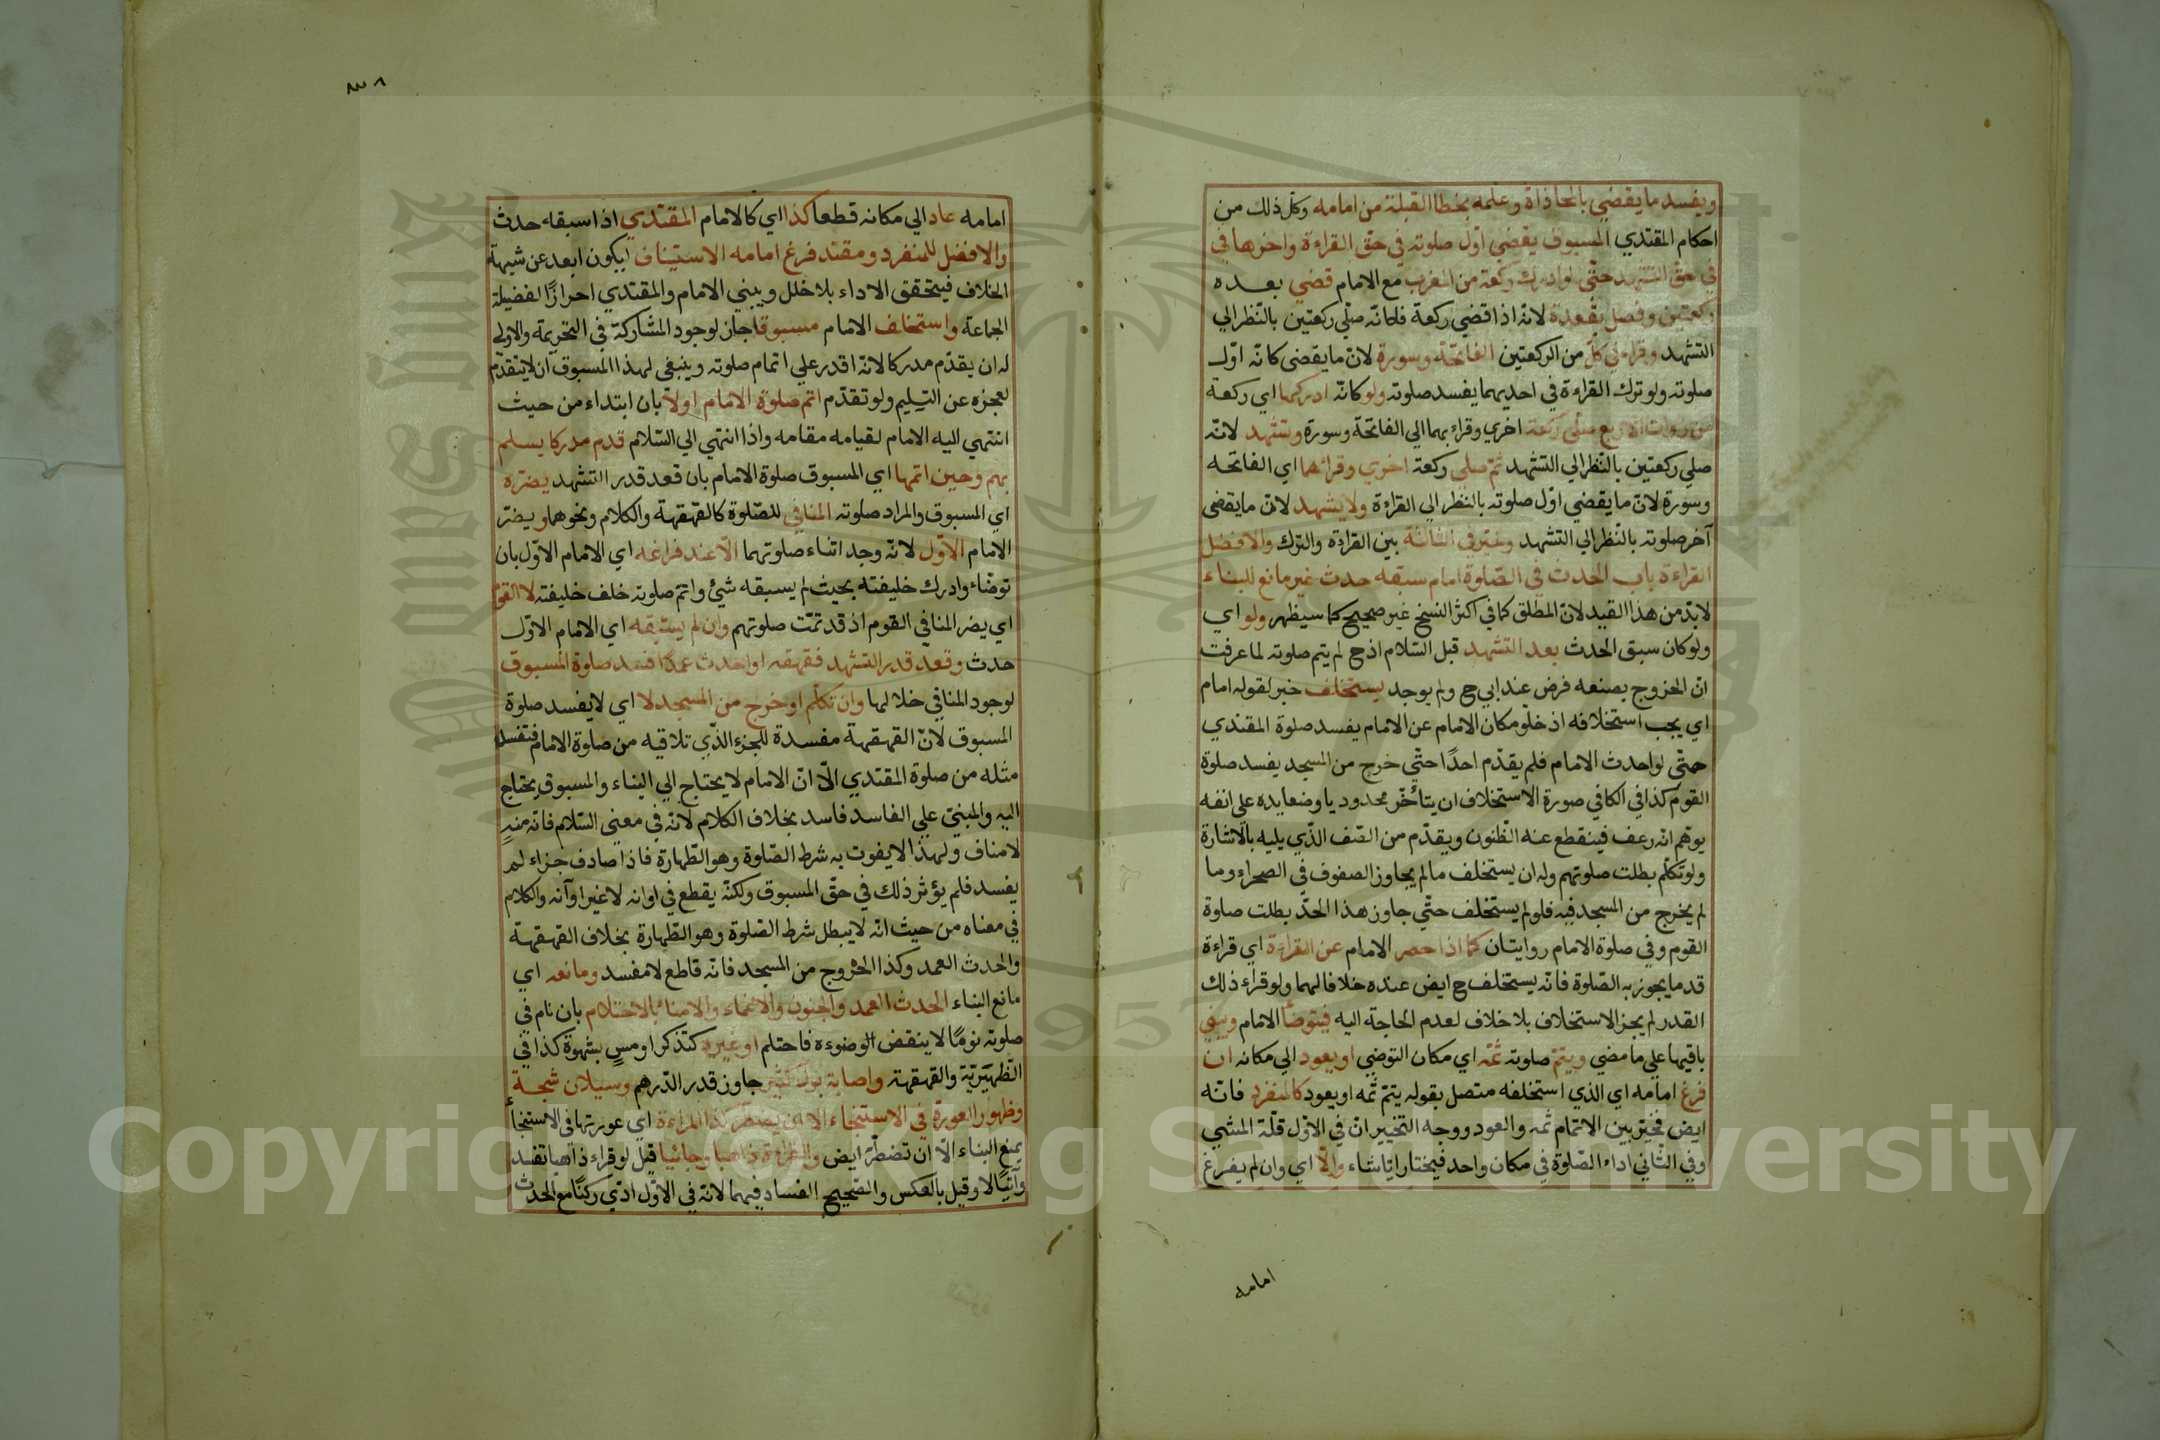 ويفسد ما يقضي بالمحاذاة وعلمه بخطا القبلة من امامه وكل ذلك من
احكام المقتدي المسبوق يقضي اوّل صلوته في حقّ القراءة واخرها في
في حقّ التشهد حتّى لو ادرك ركعة من المغرب مع الامام قضي بعده
ركعتين وفصل بقعدة لانّه اذا قضي ركعة فكانّه صلّي ركعتين بالنّظر الي
التشهد وقراء في كلّ من الركعتين الفاتحة وسورة لانّ ما يقضى كانّه اوّل
صلوته ولو ترك القراءة في احديهما يفسد صلوته ولو كانّه ادركها اي ركعة
من ذوات الاربع صلّي ركعة اخري وقراء بها الي الفاتحة وسورة وتشهد لانّه
صلي ركعتين بالنّظر الي التشهد ثمّ صلي ركعة اخري وقراهما اي الفاتحه
وسورة لانّ ما يقضي اوّل صلوته بالنظر الي القراءة ولا يتشهد لانّ ما يقضى
آخر صلوته بالنّظر الي التشهد وخيّر في الثالثة بين القراءة والترك والافضل
القراءة باب الحدث في الصّلوة امام سبقه حدث غير مانع للبناء
لا بدّ من هذا القيد لانّ المطلق كما في اكثر النسخ غير صحيح كما سيظهر ولو اي
ولو كان سبق الحدث بعد التشهد قبل السّلام اذ ح لم يتم صلوته لما عرفت
انّ الخروج بصنعه فرض عند ابي ح ولم يوجد يستخلف خبر لقوله امام
اي يجب استخلافه اذ خلو مكان الامام عن الامام يفسد صلوة المقتدي
حتّي لو احدث الامام فلم يقدّم احدًا حتّي خرج من المسجد يفسد صلوة
القوم كذا في الكافي صورة الاستخلاف ان يتأخّر محدوديا وضعا يده علي انفه
يوهّم انّه رعف فينقطع عنه الظنون ويقدّم من الصّف الذّي يليه بالاشارة
ولو تكلّم بطلت صلوتهم وله ان يستخلف ما لم يجاوز الصفوف في الصحراء وما
لم يخرج من المسجد فيه فلو لم يستخلف حتّي جاوز هذا الحدّ بطلت صلوة
القوم وفي صلوة الامام روايتان كما اذا حصر الامام عن القراءة اي قراءة
قدر ما يجوز به الصّلوة فانّه يستخلف ح ايض عنده خلافا لهما ولو قراء ذلك
القدر لم يجز الاستخلاف بلا خلاف لعدم الحاجة اليه فيتوضأ الامام ويبني
باقيها علي ما مضي ويتمّ صلوته ثمّه اي مكان التوضي او يعود الي مكانه ان
فرغ امامه اي الذي استخلفه متصل بقوله يتمّ ثمه او يعود كالمنفرد فانّه
ايض فخيّر بين الاتمام ثمه والعود ووجه التخيير انّ في الاوّل قلّة المشي
وفي الثّاني اداء الصّلوة في مكان واحد فيختار ايّا شاء والّا اي وان لم يفرغ
امامه
٣٨
امامه عاد الي مكانه قطعا كذا اي كالامام المقتدي اذا سبقه حدث
والافضل للمنفرد ومقتد فرغ امامه الاستيناف ليكون ابعد عن شبهة
الخلاف فيتحقق الاداء بلا خلل ويبني الامام والمقتدي احرازًا لفضيلة
الجماعة واستخلف الامام مسبوقا جاز لوجود المشاركة في التحريمة والاولي
له ان يقدّم مدركا لانّه اقدر علي اتمام صلوته وينبغي لهذا المسبوق ان لا يتقدّم
لعجزه عن التسليم ولو تقدّم اتم صلوة الامام اولا بان ابتداء من حيث
انتهي اليه الامام لقيامه مقامه واذا انتهي الي السّلام قدم مدركا يسلم
بهم وحين اتمها اي المسبوق صلوة الامام بان قعد قدر التشهد يضرّه
اي المسبوق والمراد صلوته المنافي للصّلوة كالقهقهة والكلام ونحوها ويضرّ
الامام الاوّل لانّه وجد اثناء صلوتهما الّا عند فراغه اي الامام الاوّل بان
توضّاء وادرك خليفته بحيث لم يسبقه شئ واتمّ صلوته خلف خليفته لا القوم
اي يضر المنافي القوم اذ قد تمّت صلوتهم وان لم يسبقه اي الامام الاوّل
حدث وقعد قدر التشهد فقهقه او احدث عمدًا فسد صلوة المسبوق
لوجود المنافي خلالها وان تكلّم او خرج من المسجد لا اي لا يفسد صلوة
المسبوق لانّ القهقهة مفسدة للجزء الذّي تلاقيه من صلوة الامام فتفسد
مثله من صلوة المقتدي الّا انّ الامام لا يحتاج الي البناء والمسبوق يحتاج
اليه والمبنيّ علي الفاسد فاسد بخلاف الكلام لانّه في معني السّلام فانّه منهٍ
لا مناف ولهذا لا يفوت به شرط الصّلوة وهو الطّهارة فاذا صادف جزاء لم
يفسد فلم يؤثر ذلك في حقّ المسبوق ولكنّه يقطع في اوانه لا غير اوآنه والكلام
في معناه من حيث انّه لا يبطل شرط الصّلوة وهو الطّهارة بخلاف القهقهة
والحدث العمد وكذا الخروج من المسجد فانّه قاطع لا مفسد ومانعه اي
مانع البناء الحدث العمد والجنون والاغماء والامناء بالاحتلام بان نام في
صلوته نومًا لا ينقض الوضوءه فاحتلم او غيره كتذكر او مسٍ بشهوة كذا في
الظّهيريّة والقهقهة واصابة بول كثير جاوز قدر الدّرهم وسيلان شجة
وظهور العورة في الاستنجاء الا ان يضطر كذا المراءة اي عورتها في الاستنجأ
يمنع البناء الّا ان تضطرّ ايض والقراءة ذاهبا وجائيا قيل لو قراء ذاهبا تفسد
وآتيًا لا وقيل بالعكس والصّحيح الفساد فيهما لانّه في الاوّل ادّي ركنًا مع الحدث
Copyright © King Saud University
King Saud University
1957